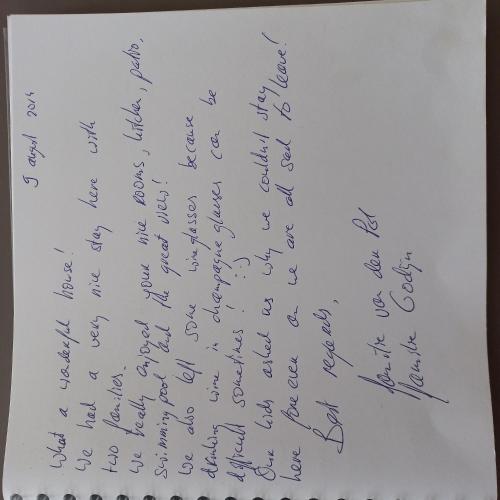 9 august 2014
What a wonderful house!
We had a very nice stay here with
two families.
We really enjoyed your nice rooms, kitchen, patio,
swimming pool and the great view!
We also left some wineglasses because
drinking wine in champagne glasses can be
difficult sometimes! :-)
Our kids asked us why we couldn't stay
here forever as we are all sad to leave!
Best regards,
familie van den Pol
familie Godijn